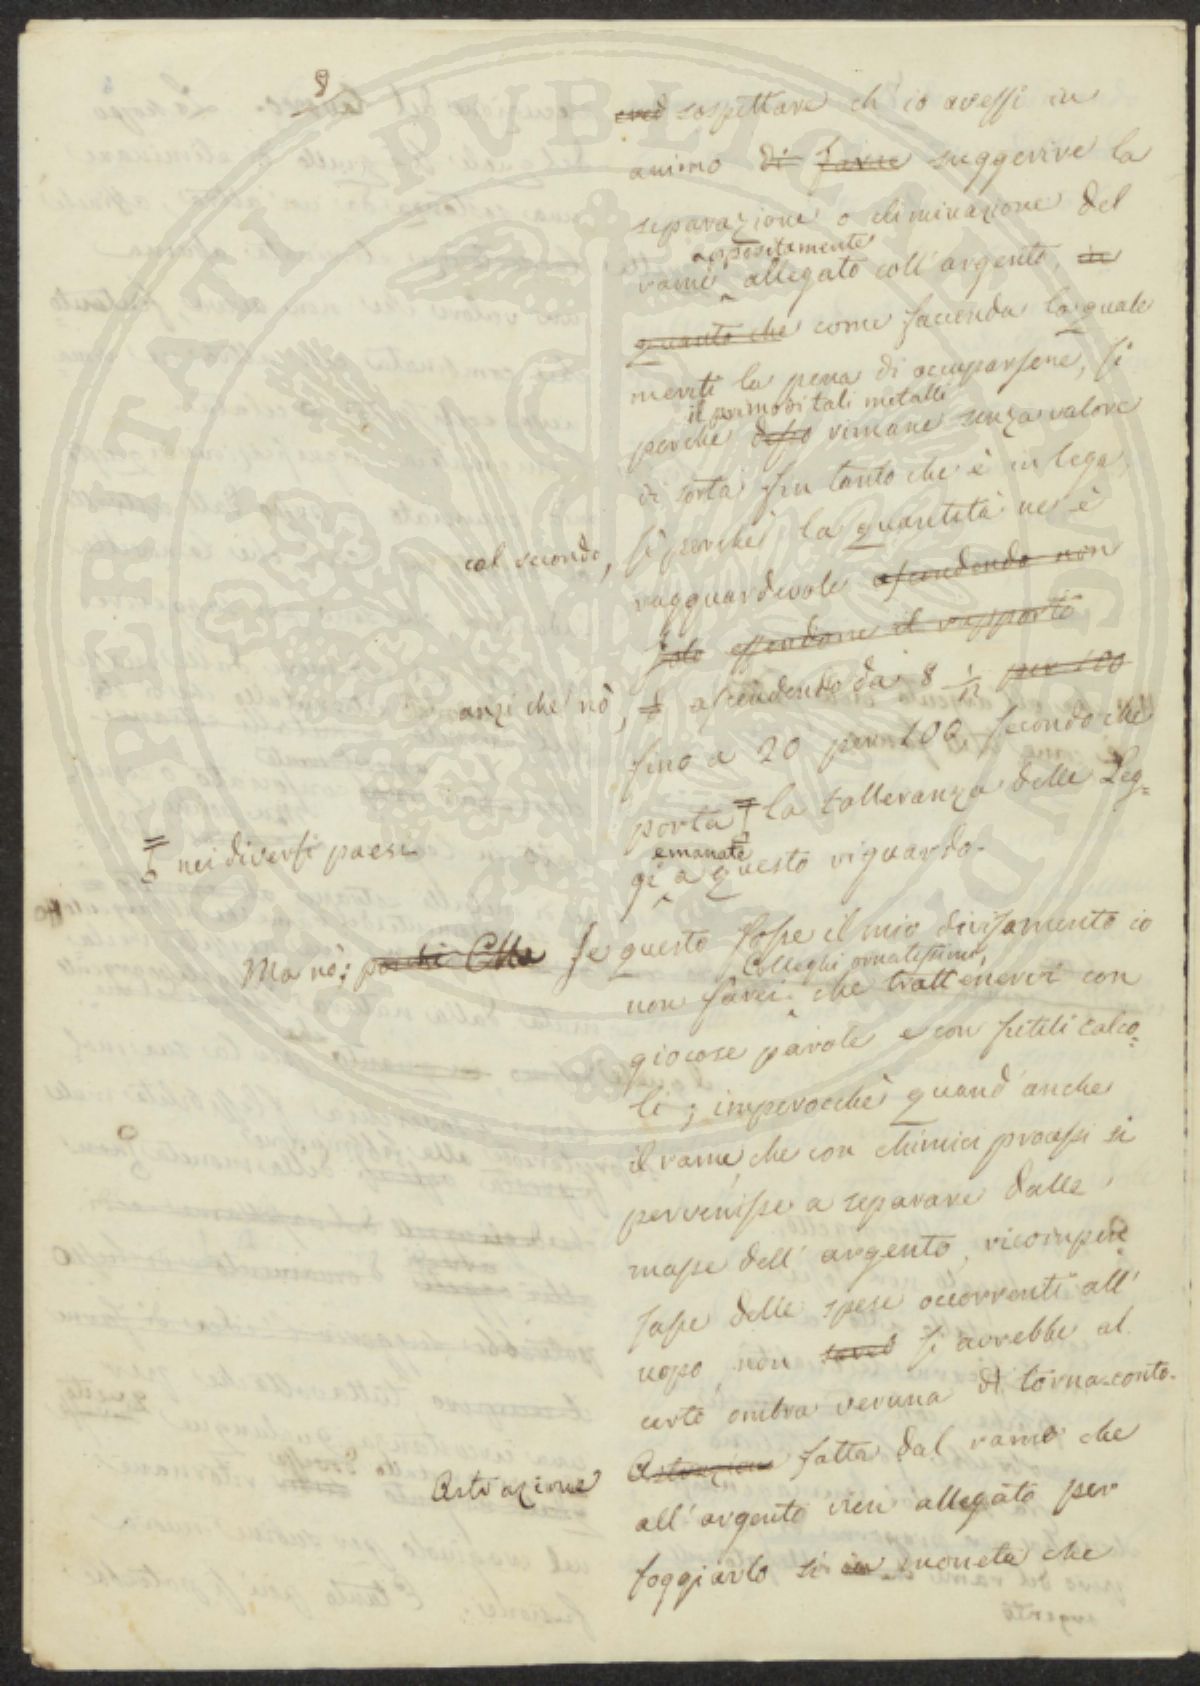 8
sospettare ch'io avessi in
animo di farne suggerire la
separazione o eliminazione del
appositamente
rame allegato coll'argento, in
quanto che come facenda la quale
meriti la pena di occuparsene, sì
il primo di tali metalli
perchè desso rimane senza valore
di sorta fin tanto che è in lega
col secondo, sì perchè la quantità ne è
ragguardevole ascendendo non
solo essendone il rapporto
anzi che nò, ascendendo da 8 1/12 per 100
fino a 20 per 100, secondo che
porta la tolleranza delle Leg=
nei diversi paesi
emanate
gi a questo riguardo.
Ma nò; perchè Ella se questo fosse il mio divisamento io
Colleghi ornatissimi,
non farei che trattenervi con
giocose parole e con futili calco=
li; imperocchè quand'anche
il rame, che con chimici processi si
pervenisse a separare dalle
masse dell'argento, ricompen
sasse delle spese occorrenti all'
uopo, non si avrebbe al
certo ombra veruna di torna-conto.
Astrazione Astrazione fatta dal rame che
all'argento vien allegato per
foggiarlo sì in moneta che